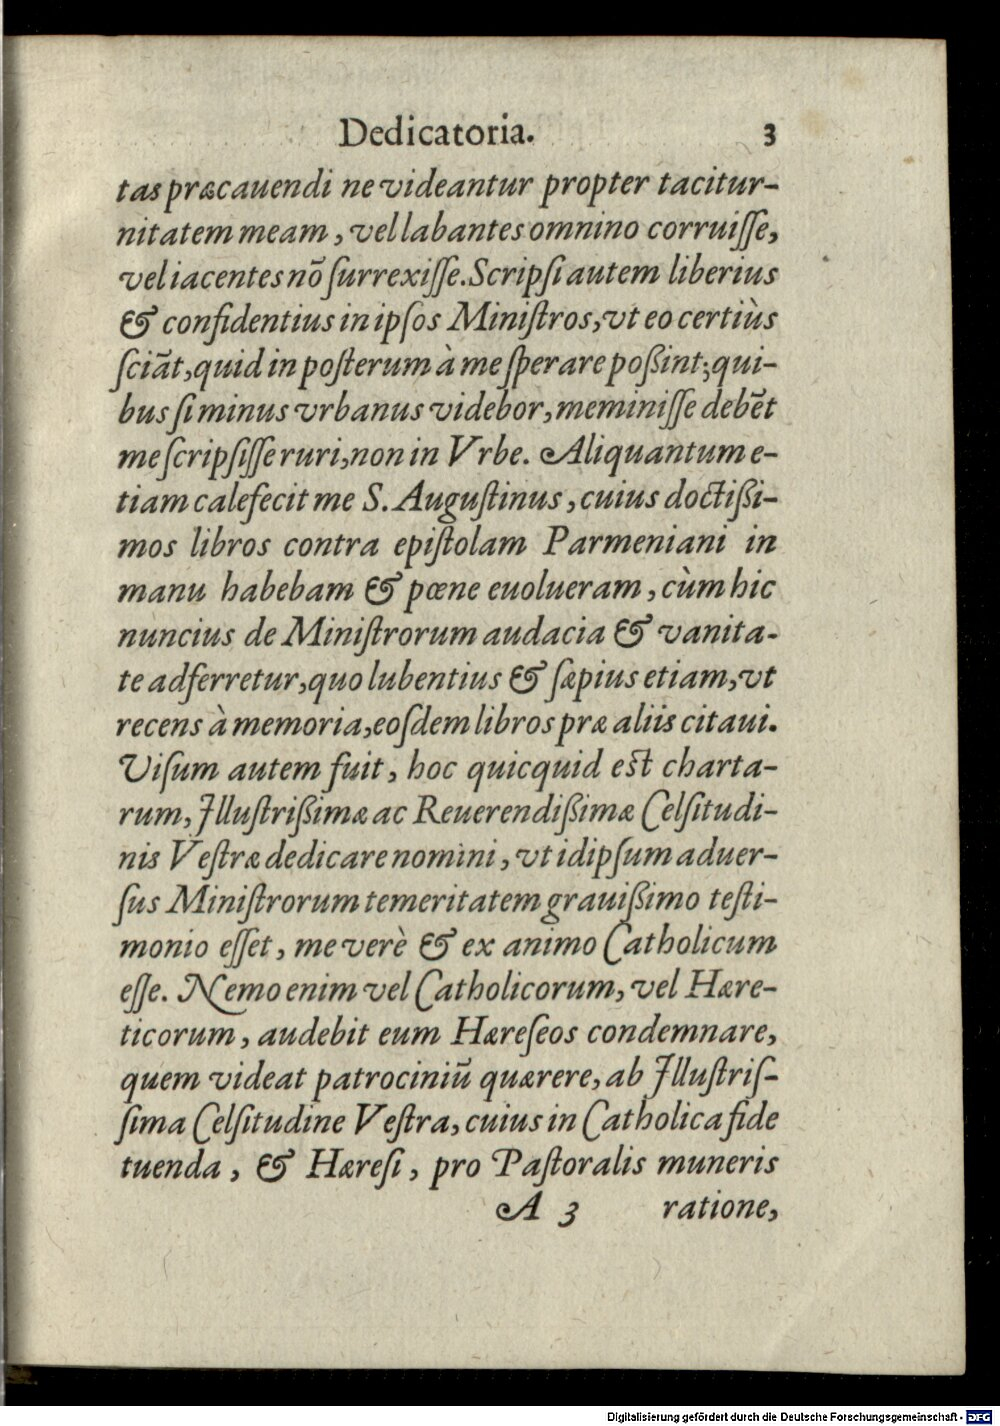 Dedicatoria. 3
tas præcauendi ne videantur propter tacitur-
nitatem meam, vel labantes omnino corruiſſe,
vel iacentes nõ ſurrexiſſe. Scripſi autem liberius
& confidentius in ipſos Miniſtros, vt eo certiùs
ſciãt, quid in poſterum à me ſperare poßint; qui-
bus ſi minus vrbanus videbor, meminiſſe debẽt
me ſcripſiſſe ruri, non in Vrbe. Aliquantum e-
tiam calefecit me S. Auguſtinus, cuius doctißi-
mos libros contra epiſtolam Parmeniani in
manu habebam & pœne euolueram, cùm hic
nuncius de Miniſtrorum audacia & vanita-
te adferretur, quo lubentius & ſæpius etiam, vt
recens à memoria, eoſdem libros præ aliis citaui.
Viſum autem fuit, hoc quicquid eſt charta-
rum, Illuſtrißimæ ac Reuerendißimæ Celſitudi-
nis Veſtræ dedicare nomini, vt id ipſum aduer-
ſus Miniſtrorum temeritatem grauißimo teſti-
monio eſſet, me verè & ex animo Catholicum
eſſe. Nemo enim vel Catholicorum, vel Hære-
ticorum, audebit eum Hæreſeos condemnare,
quem videat patrociniũ quærere, ab Illuſtriſ-
ſima Celſitudine Veſtra, cuius in Catholica fide
tuenda, & Hæreſi, pro Paſtoralis muneris
A 3 ratione,
Digitalisierung gefördert durch die Deutsche Forschungsgemeinschaft - DFG